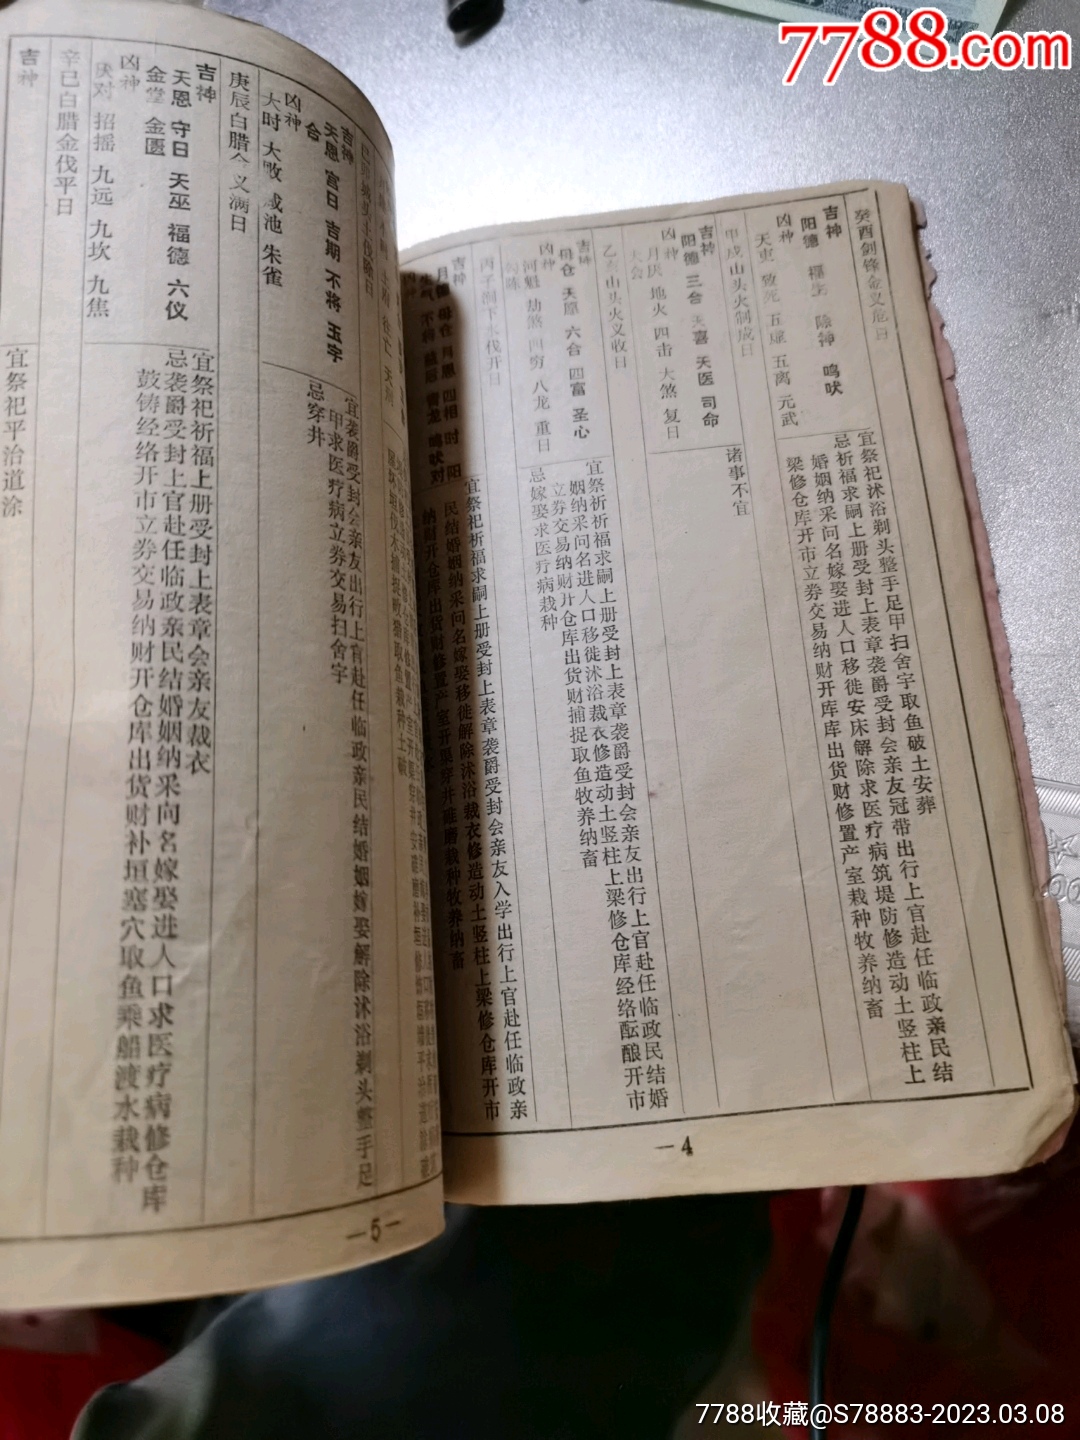 7788.com
癸酉剑锋金义危日
吉神
阳德 福生 除神 鸣吠
凶神
天吏 致死 五虚 五离 元武
宜祭祀沐浴剃头整手足甲扫舍宇取鱼破土安葬
忌祈福求嗣上册受封上表章袭爵受封会亲友冠带出行上官赴任临政亲民结
婚姻纳采问名嫁娶进人口移徙安床解除求医疗病筑堤防修造动土竖柱上
梁修仓库开市立券交易纳财开库库出货财修置产室栽种牧养纳畜
甲戌山头火制成日
吉神
阳德 三合 天喜 天医 司命
凶神
月厌 地火 四击 大煞 复日
大会
诸事不宜
乙亥山头火义收日
吉神
母仓 天愿 六合 四富 圣心
凶神
河魁 劫煞 四穷 八龙 重日
勾陈
宜祭祈祈福求嗣上册受封上表章袭爵受封会亲友出行上官赴任临政民结婚
姻纳采问名进人口移徙沐浴裁衣修造动土竖柱上梁修仓库经络酝酿开市
立券交易纳财廾仓库出货财捕捉取鱼牧养纳畜
忌嫁娶求医疗病栽种
丙子涧下水伐开日
吉神
月德 母仓 月恩 四相 时 阳
生气 不将 益后 青龙 鸣吠对
凶神
宜祭祀祈福求嗣上册受封上表章袭爵受封会亲友入学出行上官赴任临政亲
民结婚姻纳采问名嫁娶移徙解除沐浴裁衣修造动土竖柱上梁修仓库开市
纳财开仓库出货财修置产室开渠穿井碓磨栽种牧养纳畜
—4
吉神
天恩 官日 吉期 不将 玉宇
合
凶神
大时 大败 咸池 朱雀
宜袭爵受封会亲友出行上官赴任临政亲民结婚姻嫁娶解除沐浴剃头整手足
甲求医疗病立券交易扫舍宇
忌穿井
庚辰白腊金义满日
吉神
天恩 守日 天巫 福德 六仪
金堂 金匮
凶神
厌对 招摇 九远 九坎 九焦
宜祭祀祈福上册受封上表章会亲友裁衣
忌袭爵受封上官赴任临政亲民结婚姻纳采问名嫁娶进人口求医疗病修仓库
鼓铸经络开市立券交易纳财开仓库出货财补垣塞穴取鱼乘船渡水栽种
辛巳白腊金伐平日
吉神
宜祭祀平治道涂
—5—
7788收藏@S78883-2023.03.08